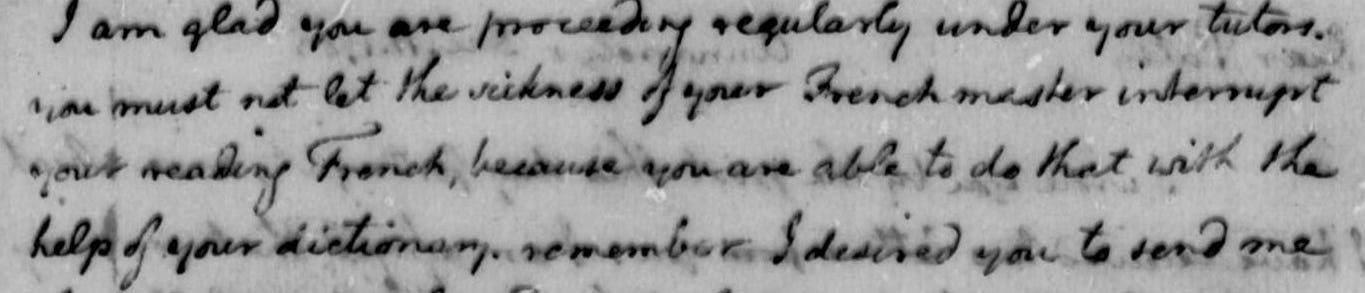 I am glad you are proceeding regularly under your tutors.
you must not let the sickness of your French master interrupt
your reading French, because you are able to do that with the
help of your dictionary. remember I desired you to send me